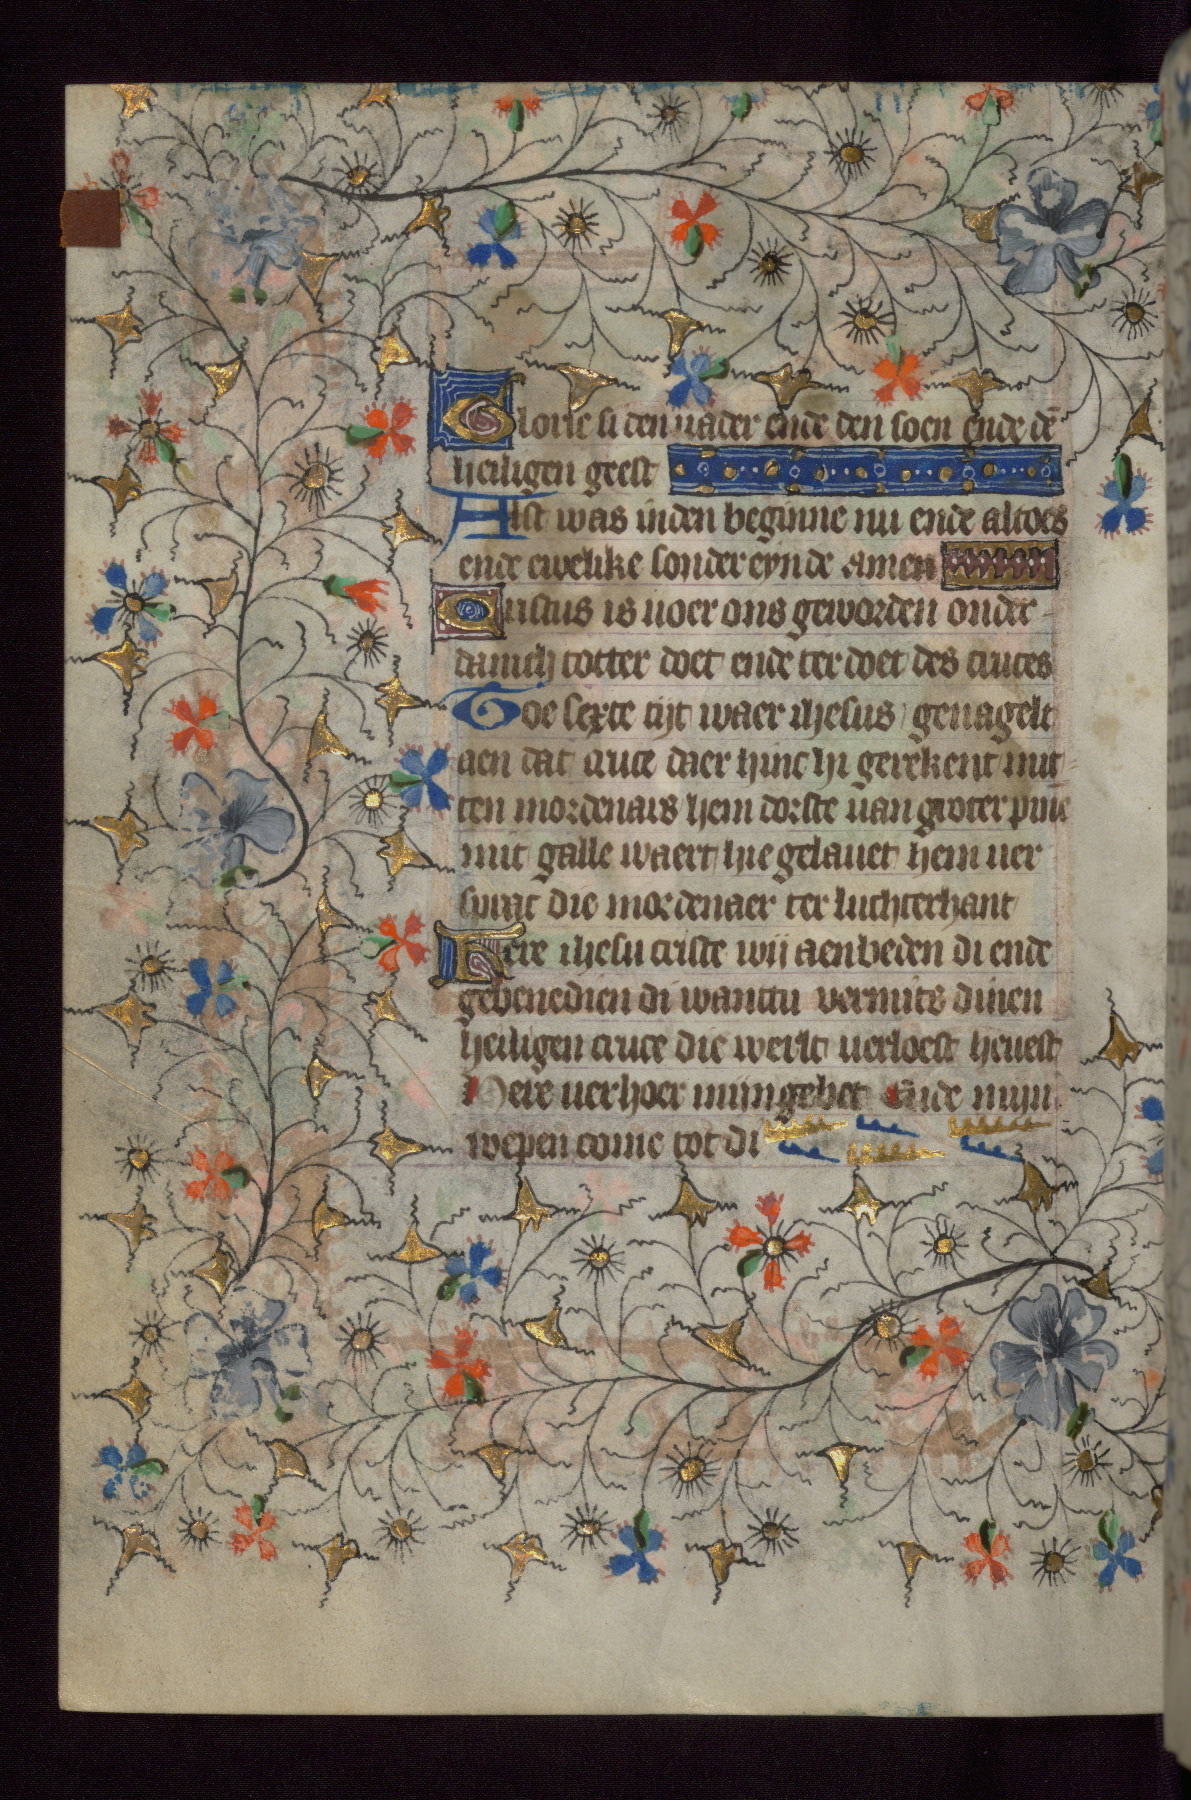 Glorie si den vader ende den soen ende dē
heiligen geest
Alst was inden beginne nu ende altoes
ende ewelike sonder eynde amen
Cristus is voer ons geworden onder
danich totter doet ende ter doet des cruces
Toe sexte tijt waer ihesus genagelt
aen dat cruce daer hinc hi gerekent mit
ten mordenars hem dorste van groter pine
mit galle waert hie gelauet hem ver
sprac die mordenaer ter luchterhant
Here ihesu criste wij aenbeden di ende
gebenedien di wanttu vermits dinen
heiligen cruce die werlt verloest heuest
Here verhoer mijn gebet Ende mijn
wepen come tot di